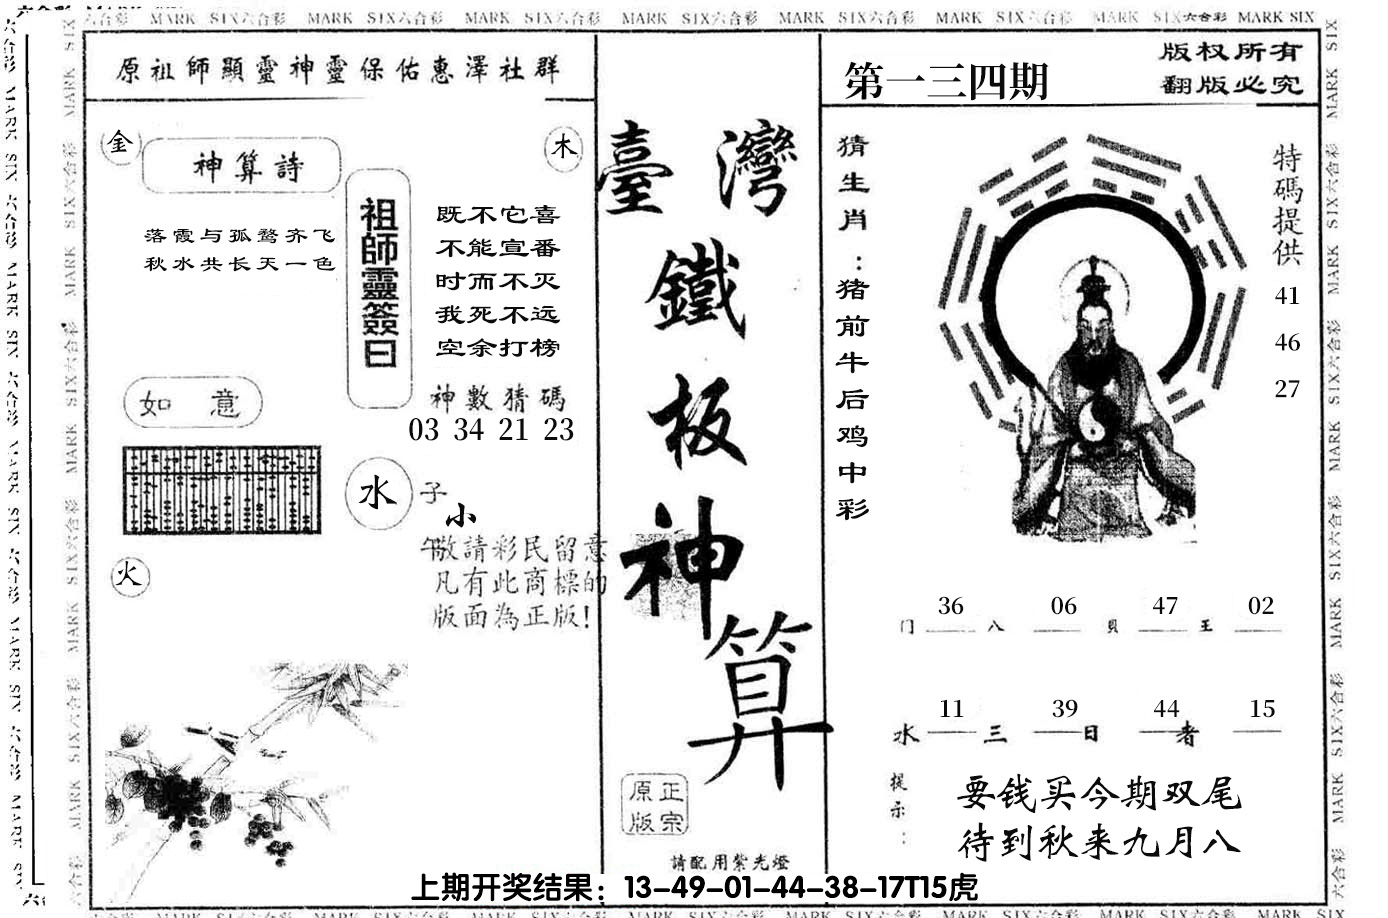 MARK SIX六合彩 MARK SIX六合彩 MARK SIX六合彩 MARK SIX六合彩 MARK SIX六合彩 MARK SIX六合彩 MARK SIX六合彩 MARK SIX
原祖師顯靈神靈保佑惠澤社群
金
神算詩
木
落霞与孤鹜齐飞
秋水共长天一色
祖師靈簽曰
既不它喜
不能宣番
时而不灭
我死不远
空余打榜
神數猜碼
03 34 21 23
如意
水
子
小
午
敬請彩民留意
凡有此商標的
版面為正版!
火
臺灣
鐵
板
神
算
正宗
原版
請配用紫光燈
第一三四期
版权所有
翻版必究
猜生肖:猪前牛后鸡中彩
特碼提供
41
46
27
36 06 47 02
门 八 貝 王
11 39 44 15
水 三 日 者
提示:
要钱买今期双尾
待到秋来九月八
上期开奖结果：13-49-01-44-38-17T15虎